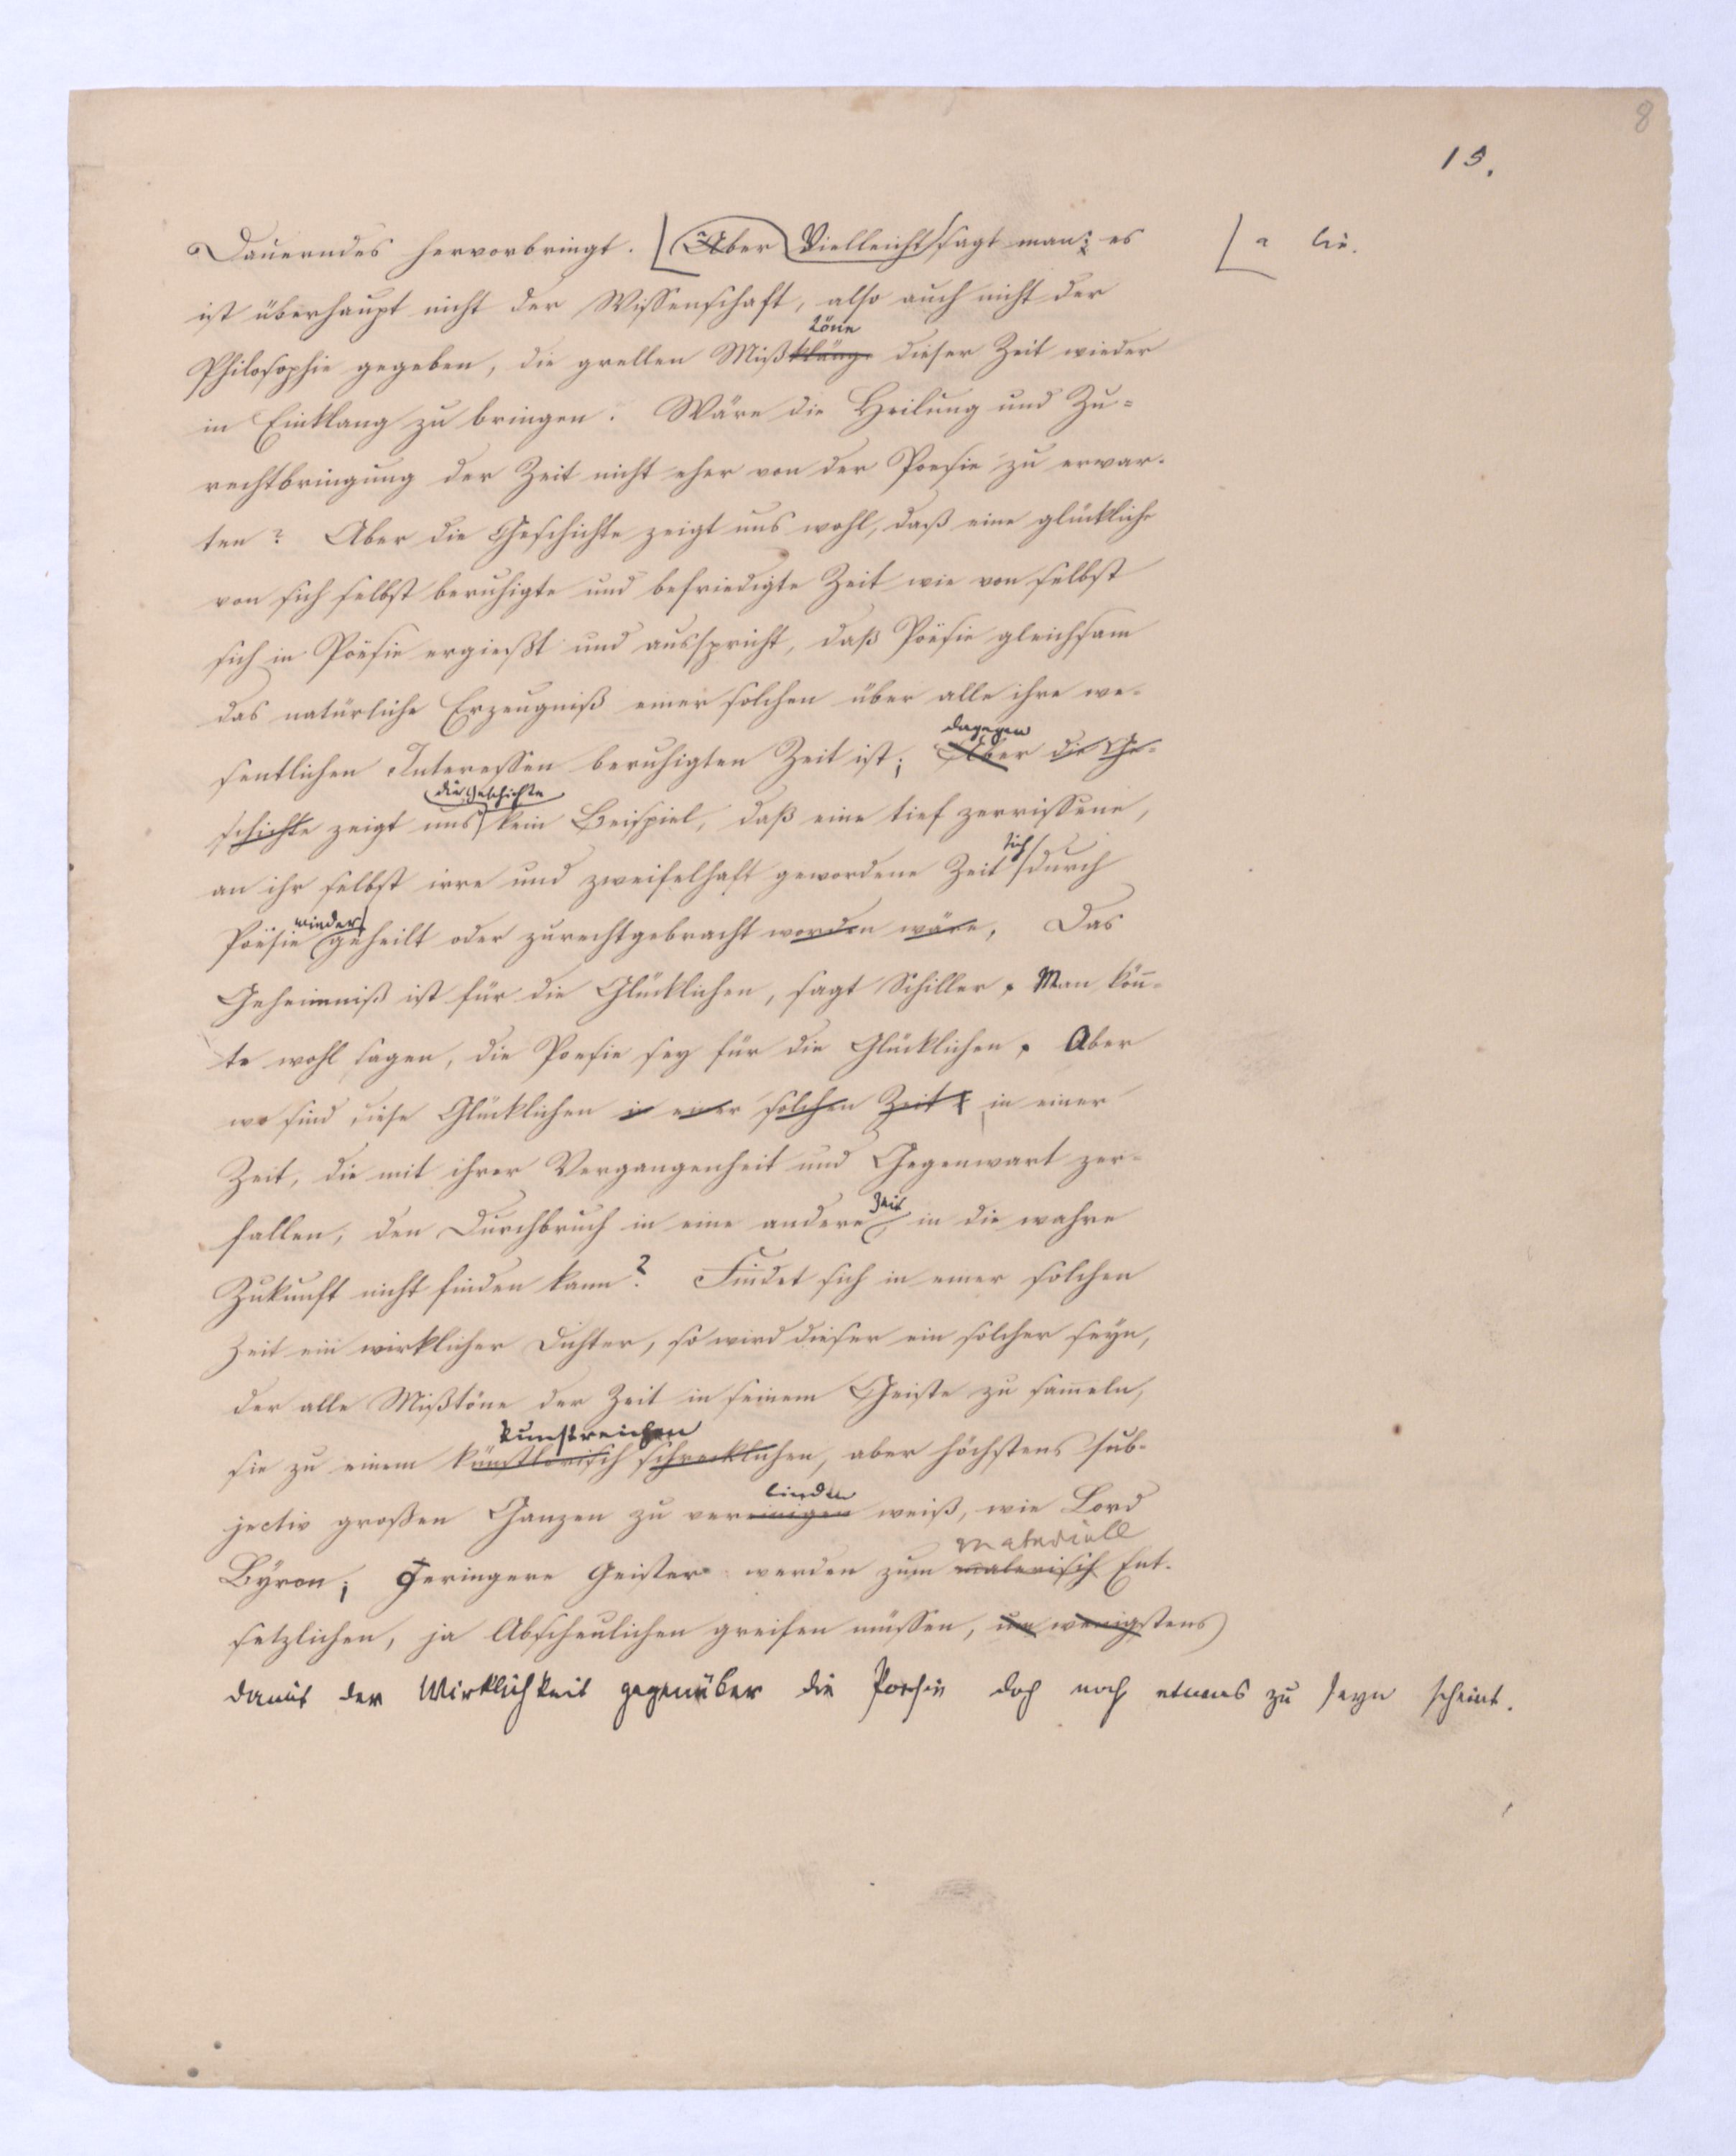 8
15.
Dauerndes hervorbringt. Aber Vielleicht sagt man: es
[a
ist überhaupt nicht der Wissenschaft, also auch nicht der
töne
Philosophie gegeben, die grellen Mißklänge dieser Zeit wieder
in Einklang zu bringen. Wäre die Heilung und Zu-
rechtbringung der Zeit nicht eher von der Poesie zu erwar-
ten? Aber die Geschichte zeigt uns wohl, daß eine glückliche
von sich selbst beruhigte und befriedigte Zeit wie von selbst
sich in Poësie ergießt und ausspricht, daß Poësie gleichsam
das natürliche Erzeugniß einer solchen über alle ihre we-
dagegen
sentlichen Interessen beruhigten Zeit ist; Aber die Ge-
die Geschichte
schichte zeigt uns kein Beispiel, daß eine tief zerrissene,
sich
an ihr selbst irre und zweifelhaft gewordene Zeit durch
wieder
Poësie geheilt oder zurechtgebracht worden wäre, Das
Geheimniß ist für die Glücklichen, sagt Schiller. Man kön̄-
te wohl sagen, die Poesie sey für die Glücklichen. Aber
wo sind diese Glücklichen in einer solchen Zeit in einer
Zeit, die mit ihrer Vergangenheit und Gegenwart zer-
Zeit
fallen, den Durchbruch in eine andere, in die wahre
Zukunft nicht finden kann? Findet sich in einer solchen
Zeit ein wirklicher Dichter, so wird dieser ein solcher seyn,
der alle Mißtöne der Zeit in seinem Geiste zu sam̄eln,
kunstreichen
sie zu einem künstlerisch schrecklichen, aber höchstens sub-
binden
jectiv großen Ganzen zu vereinigen weiß, wie Lord
materiell
Byron; Geringere Geister werden zum malerisch Ent-
setzlichen, ja Abscheulichen greifen müssen, um wenigstens
damit der Wirklichkeit gegenüber die Poesie doch noch etwas zu seyn scheint.